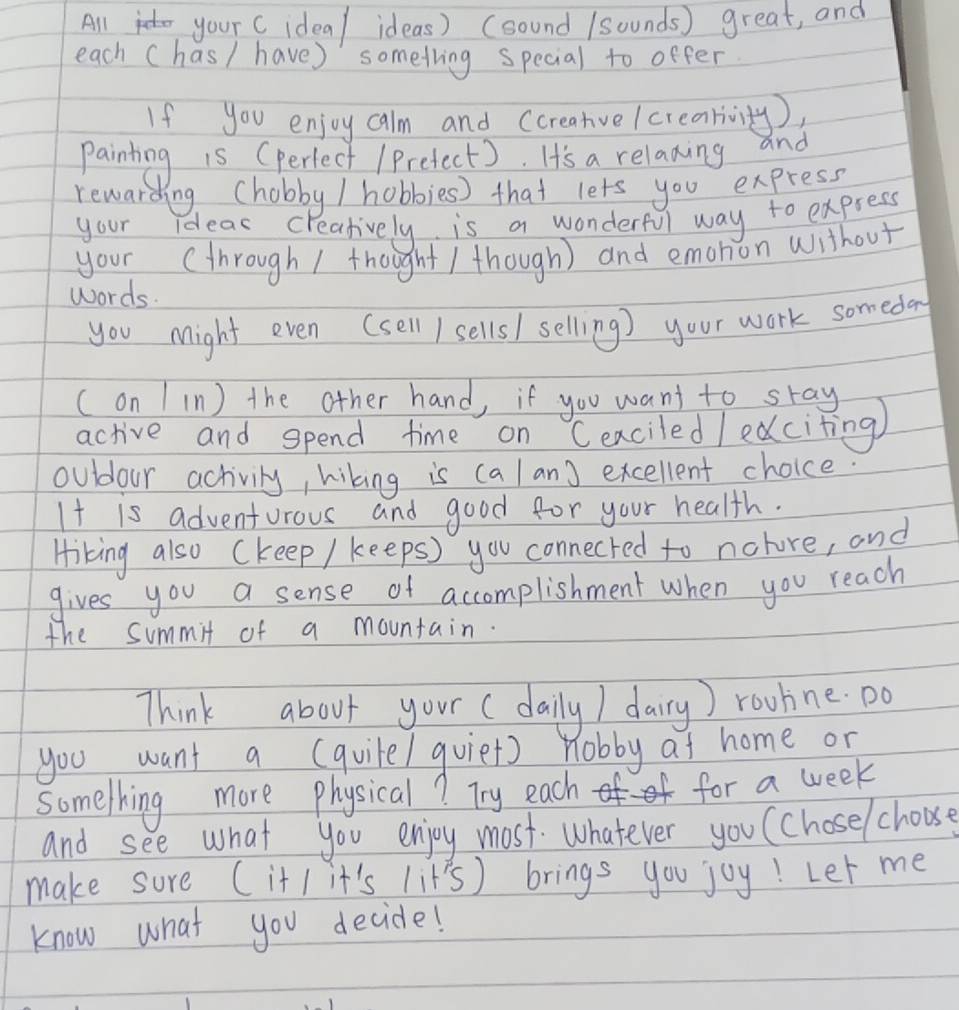 All your ( idea / ideas ) ( sound / sounds ) great, and
each ( has / have ) something special to offer.
If you enjoy calm and ( creative / creativity ),
painting is ( perfect / prefect ). It's a relaxing and
rewarding ( hobby / hobbies ) that lets you express
your ideas creatively. is a wonderful way to express
your ( through / thought / though ) and emotion without
words.
you might even ( sell / sells / selling ) your work someday
( on / in ) the other hand, if you want to stay
active and spend time on ( excited / exciting )
outdour activity, hiking is ( a / an ) excellent choice.
It is adventurous and good for your health.
Hiking also ( keep / keeps ) you connected to nature, and
gives you a sense of accomplishment when you reach
the summit of a mountain.
Think about your ( daily / dairy ) routine. Do
you want a ( quite / quiet ) hobby at home or
something more physical ? Try each of of for a week
and see what you enjoy most. Whatever you ( chose / choose
make sure ( it / it's / it's ) brings you joy ! Let me
know what you decide!